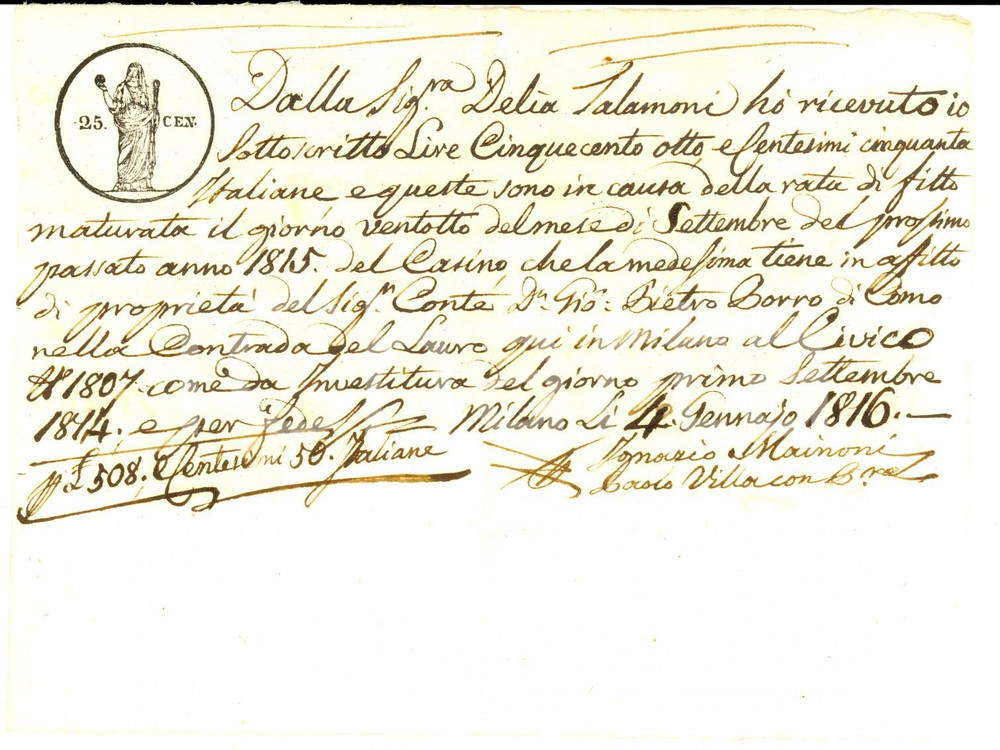 25. CEN.
Dalla Sig.ra Delia Salamoni hò ricevuto io
Sottoscritto Lire Cinquecento otto, e Centesimi cinquanta
Italiane e queste sono in causa della rata di fitto
maturata il giorno ventotto del mese di Settembre del prossimo
passato anno 1815. del Casino, che la medesima tiene in affitto
di proprietà del Sig.r Conte Dn. Gio: Pietro Borro di Como
nella Contrada del Lauro qui in Milano al Civico
N° 1807. come da Investitura del giorno primo Settembre
1814. e per fede Milano Li 4. Gennajo 1816.
£ 508. Centesimi 50. Italiane
Ignazio Mainoni
Villa con